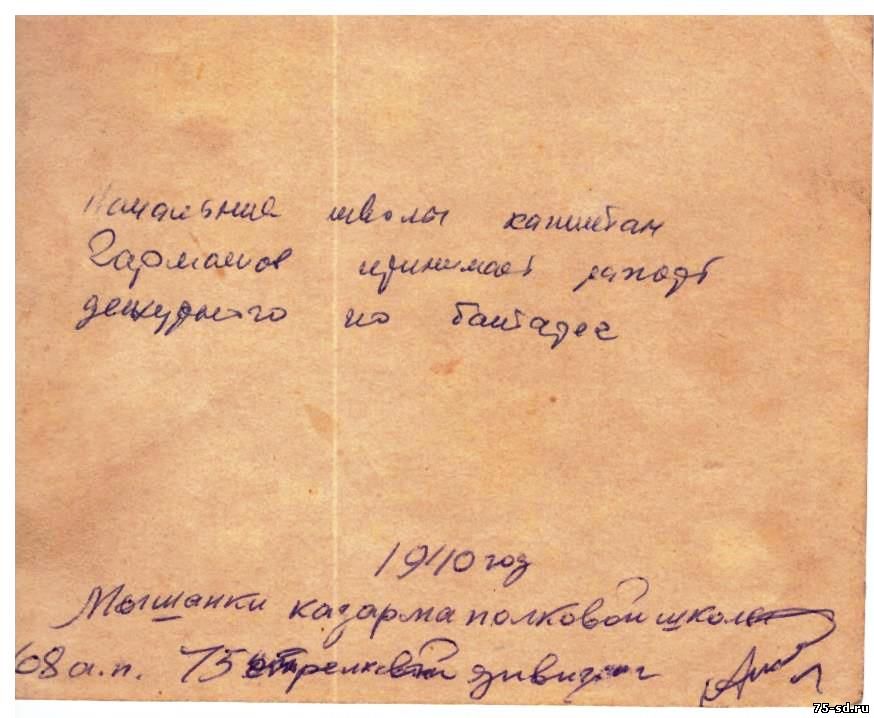 Начальник школы капитан
Гармашов принимает рапорт
дежурного по батарее
1940 год
Мышанки казарма полковой школы
68 а.п. 75 стрелковой дивизии
75-sd.ru